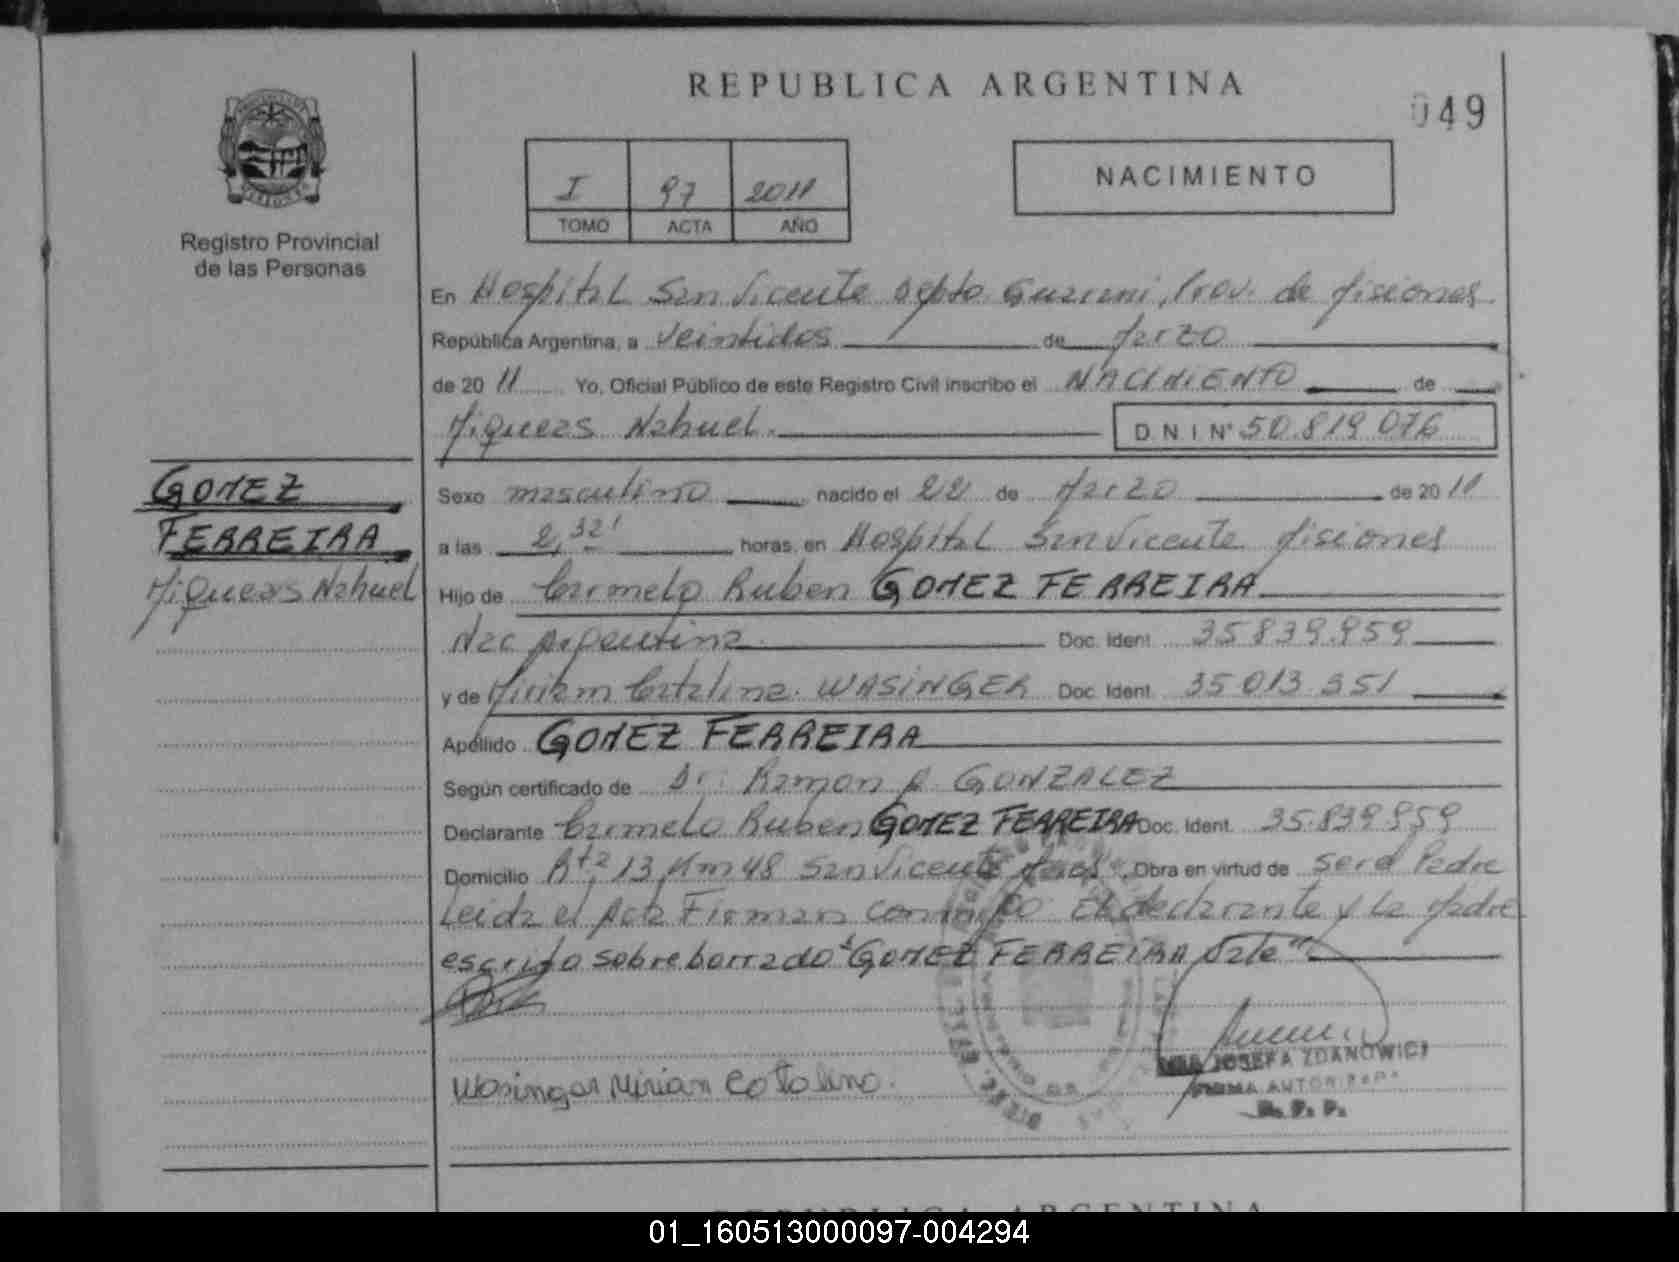 REPUBLICA ARGENTINA
049
I 97 2011
TOMO ACTA AÑO
NACIMIENTO
Registro Provincial
de las Personas
En Hospital San Vicente Depto. Guarani, Prov. de Misiones
República Argentina, a Veintidos de Marzo
de 20 11 Yo, Oficial Público de este Registro Civil inscribo el NACIMIENTO de
Miqueas Nahuel. D.N.I. N° 50.819.076
GOMEZ
FERREIRA
Miqueas Nahuel
Sexo masculino nacido el 22 de Marzo de 20 11
a las 2,32' horas, en Hospital San Vicente Misiones
Hijo de Carmelo Ruben GOMEZ FERREIRA
Nac Argentina Doc. Ident. 35.839.959
y de Miriam Catalina WASINGER Doc. Ident. 35.013.351
Apellido GOMEZ FERREIRA
Según certificado de Dr: Ramon A. GONZALEZ
Declarante Carmelo Ruben GOMEZ FERREIRA Doc. Ident. 35.839.959
Domicilio Rta 13 Km 48 San Vicente Mnes. Obra en virtud de ser el Padre
Leida el Acta Firman conmigo El declarante y La Madre
escrito sobre borrado "GOMEZ FERREIRA Vale"
Wasinger Mirian Catalina.
JOSEFA ZDANOWICZ
FIRMA AUTORIZADA
R. P. P.
REPUBLICA ARGENTINA
01_160513000097-004294